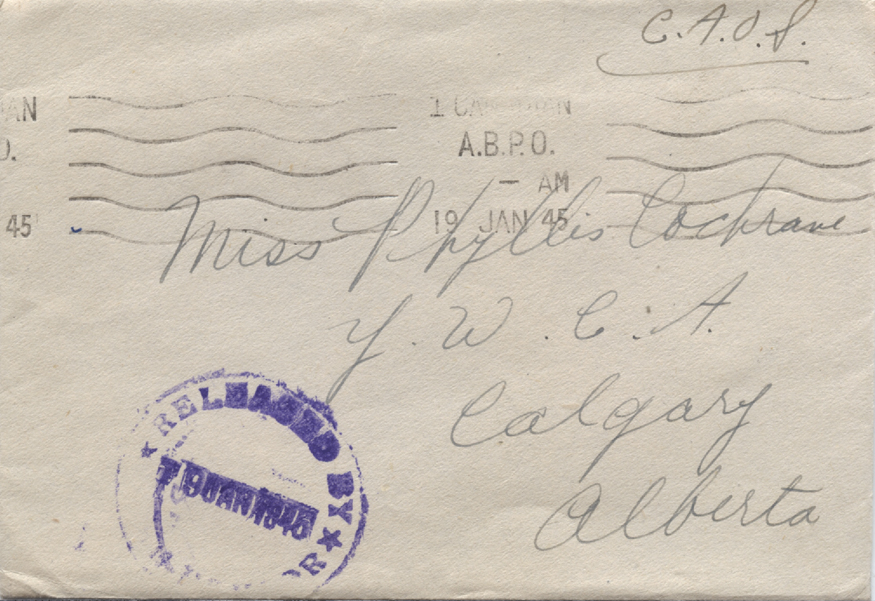 C.A.O.S.
AN
1 CANADIAN
A.B.P.O.
- AM
45
19 JAN 45
Miss Phyllis Cochrane
Y.W.C.A.
Calgary
Alberta
★ RELEASED BY ★
JAN 1945